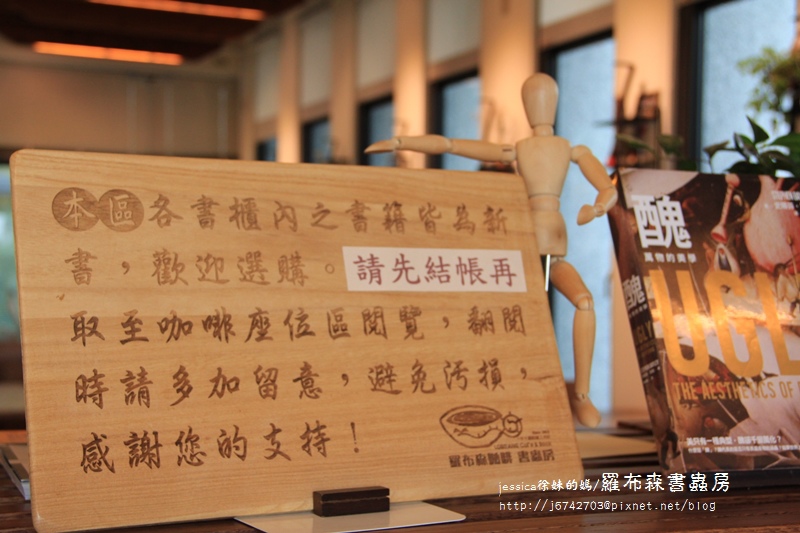 本區各書櫃內之書籍皆為新
書，歡迎選購。請先結帳再
取至咖啡座位區閱覽，翻閱
時請多加留意，避免汚損，
感謝您的支持！
羅布森 書蟲房
醜
萬物的美學
醜
UGLY
UGL
THE AESTHETICS OF
jessica徐妹的媽/羅布森書蟲房
http://j6742703@pixnet.net/blog